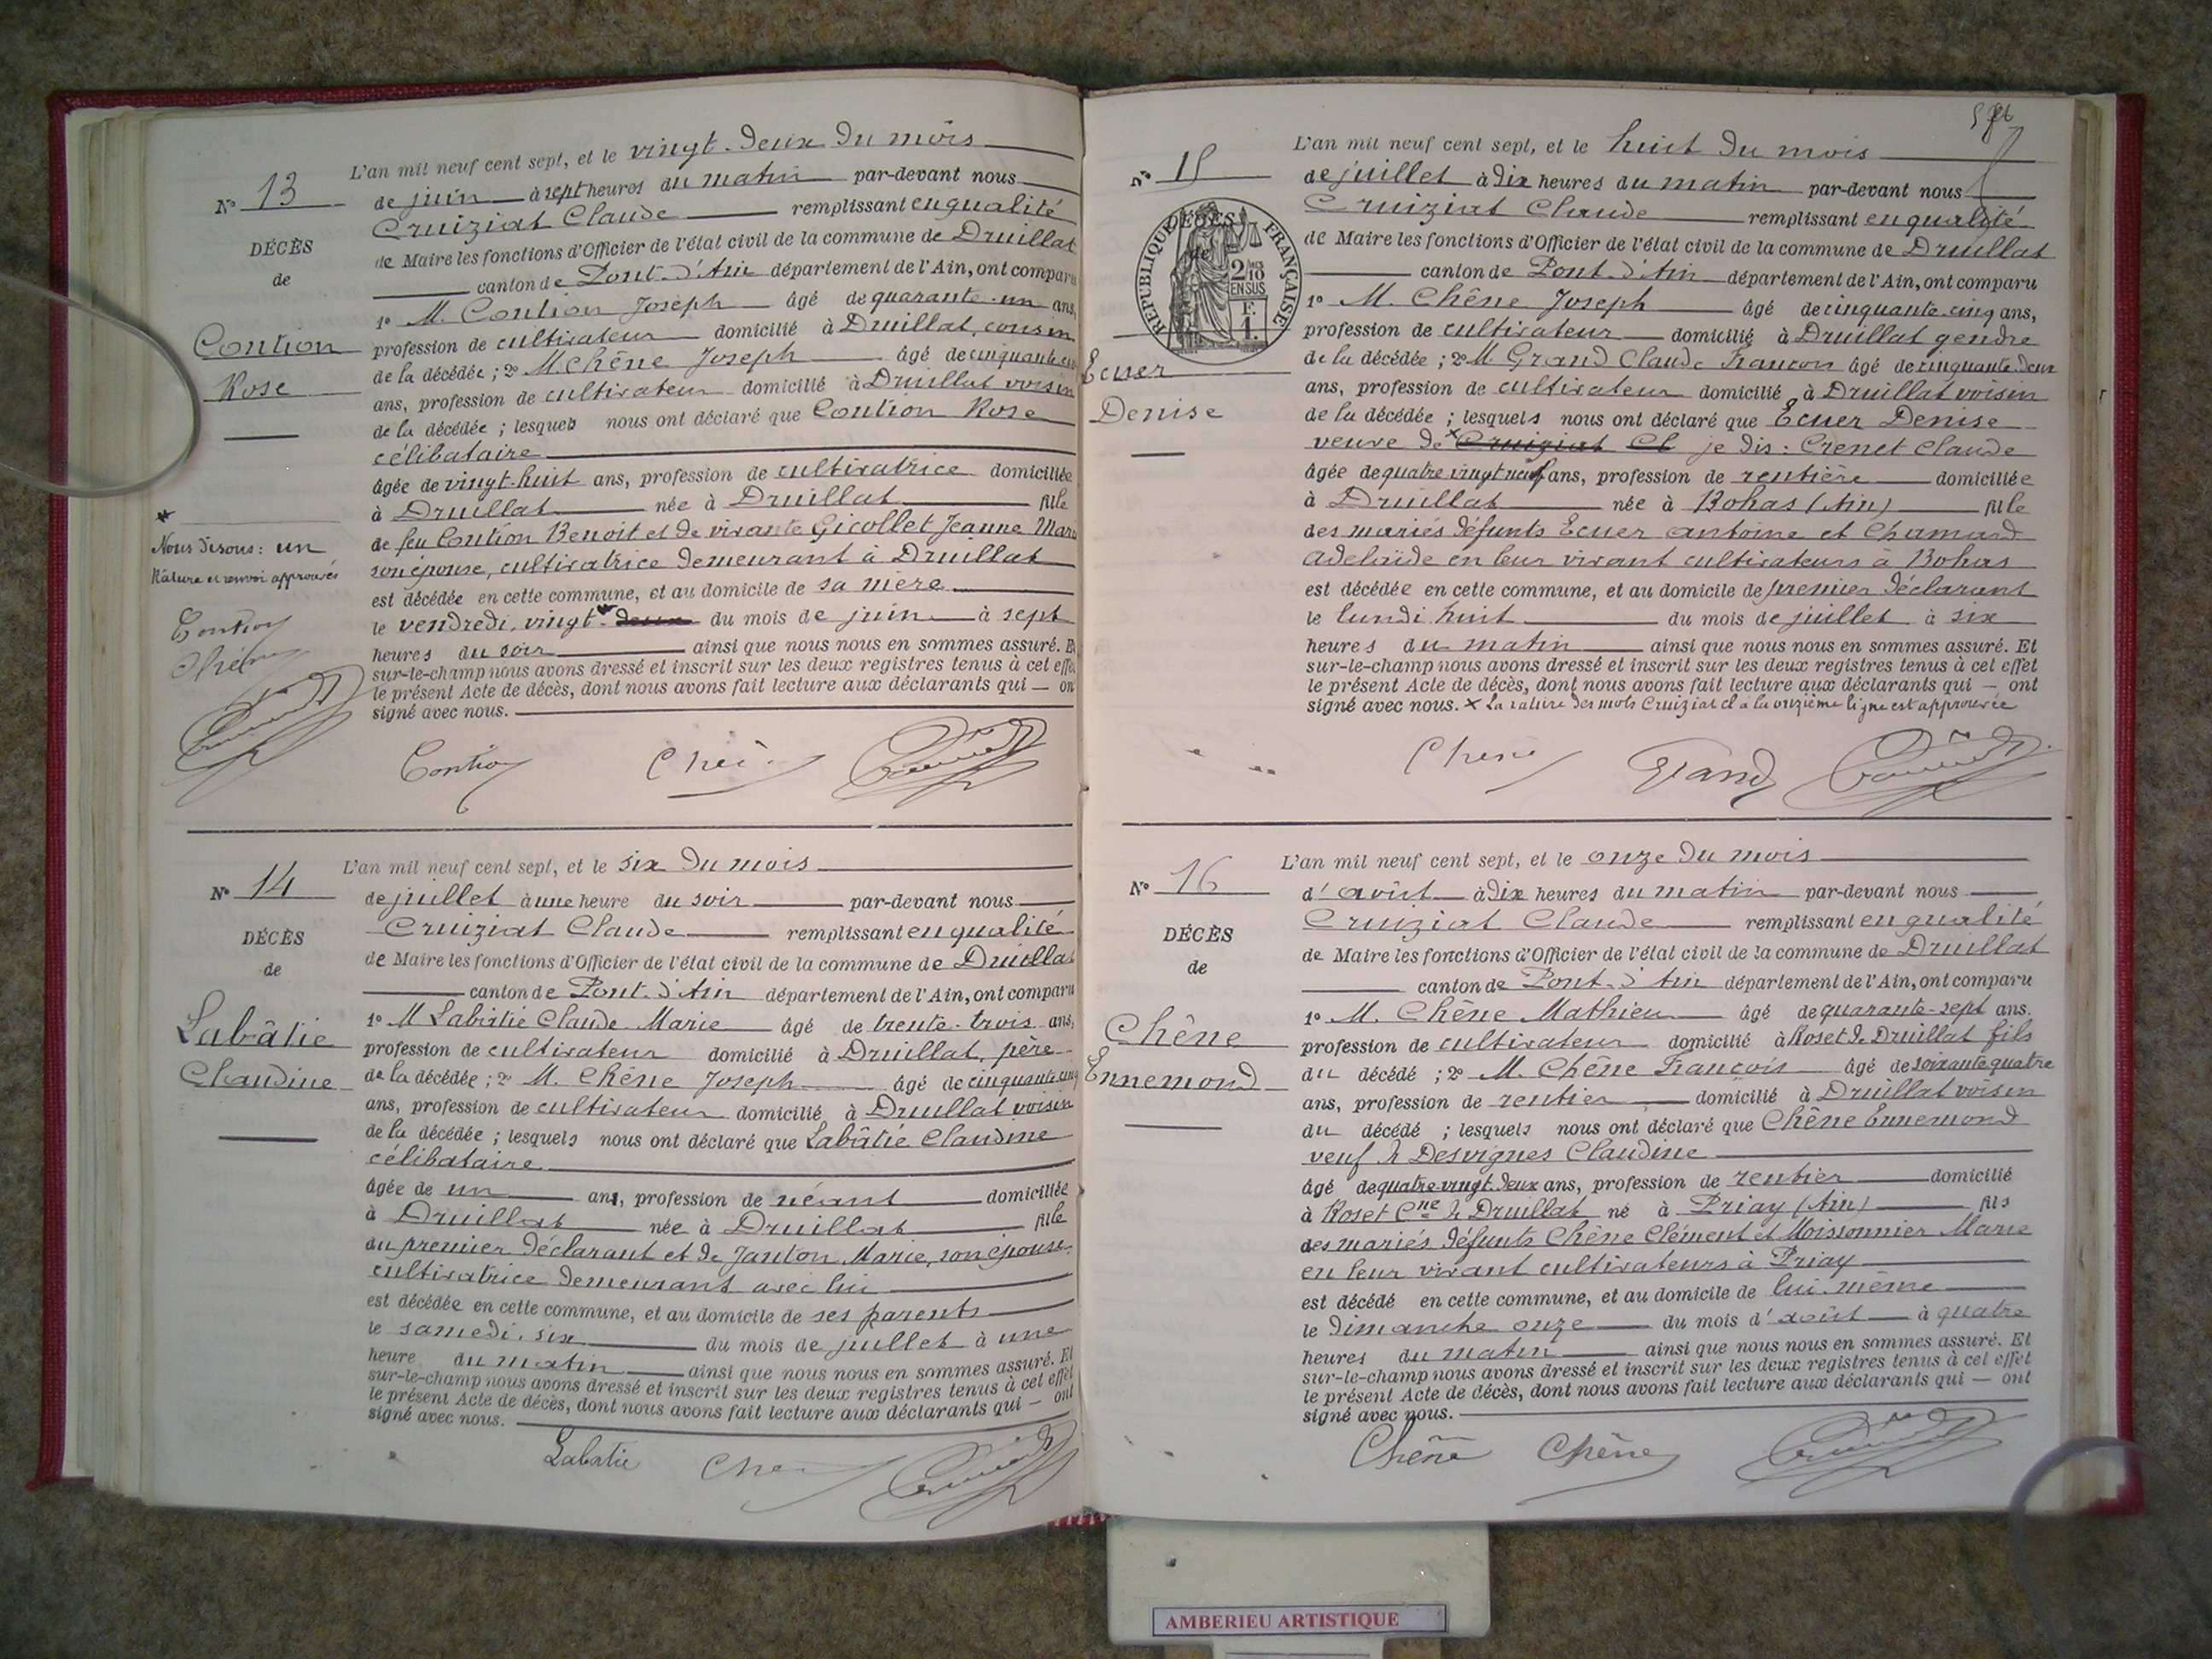 N° 13
DÉCÈS
de
Contion
Rose
L'an mil neuf cent sept, et le vingt-deux du mois
de juin à sept heures du matin par-devant nous
Cruiziat Claude remplissant en qualité
de Maire les fonctions d'Officier de l'état civil de la commune de Druillat
canton de Pont-d'Ain département de l'Ain, ont comparu
1° M. Contion Joseph âgé de quarante-un ans,
profession de cultivateur domicilié à Druillat, cousin
de la décédée ; 2° M. Chêne Joseph âgé de cinquante cinq
ans, profession de cultivateur domicilié à Druillat voisin
de la décédée ; lesquels nous ont déclaré que Contion Rose
célibataire
âgée de vingt-huit ans, profession de cultivatrice domiciliée
à Druillat née à Druillat fille
de feu Contion Benoit et de vivante Gicollet Jeanne Marie
son épouse, cultivatrice demeurant à Druillat
est décédée en cette commune, et au domicile de sa mère
le vendredi, vingt * deux du mois de juin à sept
heures du soir ainsi que nous nous en sommes assuré. Et
sur-le-champ nous avons dressé et inscrit sur les deux registres tenus à cet effet
le présent Acte de décès, dont nous avons fait lecture aux déclarants qui — ont
signé avec nous.
*
Nous disons : un
Rature et renvoi approuvés
Contion
Chêne
Contion Chêne
N° 14
DÉCÈS
de
Labâtie
Claudine
L'an mil neuf cent sept, et le six du mois
de juillet à une heure du soir par-devant nous
Cruiziat Claude remplissant en qualité
de Maire les fonctions d'Officier de l'état civil de la commune de Druillat
canton de Pont-d'Ain département de l'Ain, ont comparu
1° M Labâtie Claude Marie âgé de trente-trois ans,
profession de cultivateur domicilié à Druillat, père
de la décédée ; 2° M. Chêne Joseph âgé de cinquante cinq
ans, profession de cultivateur domicilié à Druillat voisin
de la décédée ; lesquels nous ont déclaré que Labâtie Claudine
célibataire
âgée de un ans, profession de néant domiciliée
à Druillat née à Druillat fille
du premier déclarant et de Janton Marie, son épouse,
cultivatrice demeurant avec lui
est décédée en cette commune, et au domicile de ses parents
le samedi, six du mois de juillet à une
heure du matin ainsi que nous nous en sommes assuré. Et
sur-le-champ nous avons dressé et inscrit sur les deux registres tenus à cet effet
le présent Acte de décès, dont nous avons fait lecture aux déclarants qui — ont
signé avec nous.
Labatie Chêne
N° 15
DÉCÈS
de
RÉPUBLIQUE FRANÇAISE
2/10
EN SUS
F.
1.
Ecuer
Denise
L'an mil neuf cent sept, et le huit du mois
de juillet à dix heures du matin par-devant nous
Cruiziat Claude remplissant en qualité
de Maire les fonctions d'Officier de l'état civil de la commune de Druillat
canton de Pont-d'Ain département de l'Ain, ont comparu
1° M. Chêne Joseph âgé de cinquante-cinq ans,
profession de cultivateur domicilié à Druillat gendre
de la décédée ; 2° M. Grand Claude François âgé de cinquante-deux
ans, profession de cultivateur domicilié à Druillat voisin
de la décédée ; lesquels nous ont déclaré que Ecuer Denise
veuve de × Cruiziat Cl je dis : Crenet Claude
âgée de quatre vingt neuf ans, profession de rentière domiciliée
à Druillat née à Bohas (Ain) fille
des mariés défunts Ecuer Antoine et Chamard
Adelaïde en leur vivant cultivateurs à Bohas
est décédée en cette commune, et au domicile de premier déclarant
le lundi huit du mois de juillet à six
heures du matin ainsi que nous nous en sommes assuré. Et
sur-le-champ nous avons dressé et inscrit sur les deux registres tenus à cet effet
le présent Acte de décès, dont nous avons fait lecture aux déclarants qui — ont
signé avec nous. × La rature des mots Cruiziat cl à la onzième ligne est approuvée
Chêne Grand
N° 16
DÉCÈS
de
Chêne
Ennemond
L'an mil neuf cent sept, et le onze du mois
d'août à dix heures du matin par-devant nous
Cruiziat Claude remplissant en qualité
de Maire les fonctions d'Officier de l'état civil de la commune de Druillat
canton de Pont-d'Ain département de l'Ain, ont comparu
1° M. Chêne Mathieu âgé de quarante-sept ans.
profession de cultivateur domicilié à Roset de Druillat fils
du décédé ; 2° M. Chêne François âgé de soixante quatre
ans, profession de rentier domicilié à Druillat voisin
du décédé ; lesquels nous ont déclaré que Chêne Ennemond
veuf de Desvignes Claudine
âgé de quatre-vingt-deux ans, profession de rentier domicilié
à Roset Cne de Druillat né à Priay (Ain) fils
des mariés défunts Chêne Clément et Moissonnier Marie
en leur vivant cultivateurs à Priay
est décédé en cette commune, et au domicile de lui-même
le dimanche onze du mois d'août à quatre
heures du matin ainsi que nous nous en sommes assuré. Et
sur-le-champ nous avons dressé et inscrit sur les deux registres tenus à cet effet
le présent Acte de décès, dont nous avons fait lecture aux déclarants qui — ont
signé avec nous.
Chêne Chêne
AMBERIEU ARTISTIQUE